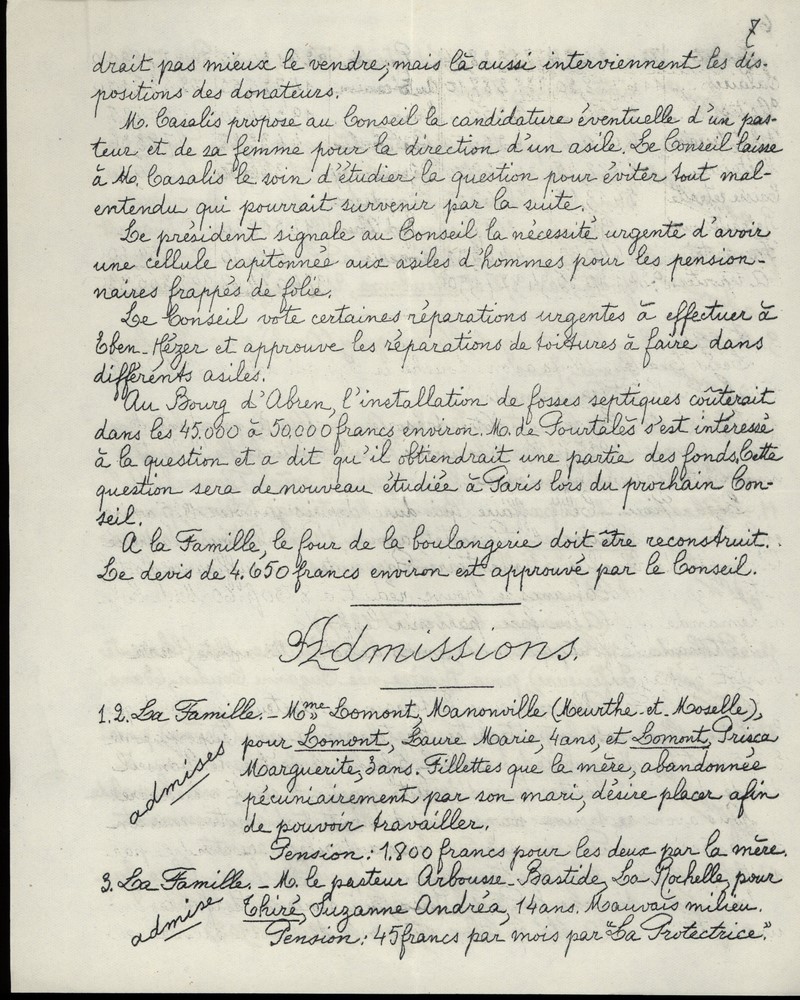 7
drait pas mieux le vendre; mais là aussi interviennent les dis-
positions des donateurs.
M. Casalis propose au Conseil la candidature éventuelle d'un pas-
teur et de sa femme pour la direction d'un asile. Le Conseil laisse
à M. Casalis le soin d'étudier la question pour éviter tout mal-
entendu qui pourrait survenir par la suite.
Le président signale au Conseil la nécessité urgente d'avoir
une cellule capitonnée aux asiles d'hommes pour les pension-
naires frappés de folie.
Le Conseil vote certaines réparations urgentes à effectuer à
Eben-Hézer et approuve les réparations de toitures à faire dans
différents asiles.
Au Bourg d'Abren, l'installation de fosses septiques coûterait
dans les 45.000 à 50.000 francs environ. M. de Pourtalès s'est intéressé
à la question et a dit qu'il obtiendrait une partie des fonds. Cette
question sera de nouveau étudiée à Paris lors du prochain Con-
seil.
A la Famille, le four de la boulangerie doit être reconstruit.
Le devis de 4.650 francs environ est approuvé par le Conseil.
Admissions.
1.2. La Famille. - Mme Lomont, Manonville (Meurthe-et-Moselle),
pour Lomont, Laure Marie, 4 ans, et Lomont, Prisca
Marguerite, 3 ans. Fillettes que la mère, abandonnée
admises
pécuniairement par son mari, désire placer afin
de pouvoir travailler.
Pension: 1.800 francs pour les deux par la mère.
3. La Famille. - M. le pasteur Arbousse-Bastide, La Rochelle, pour
Thiré, Suzanne Andréa, 14 ans. Mauvais milieu.
admise
Pension: 45 francs par mois par "La Protectrice".